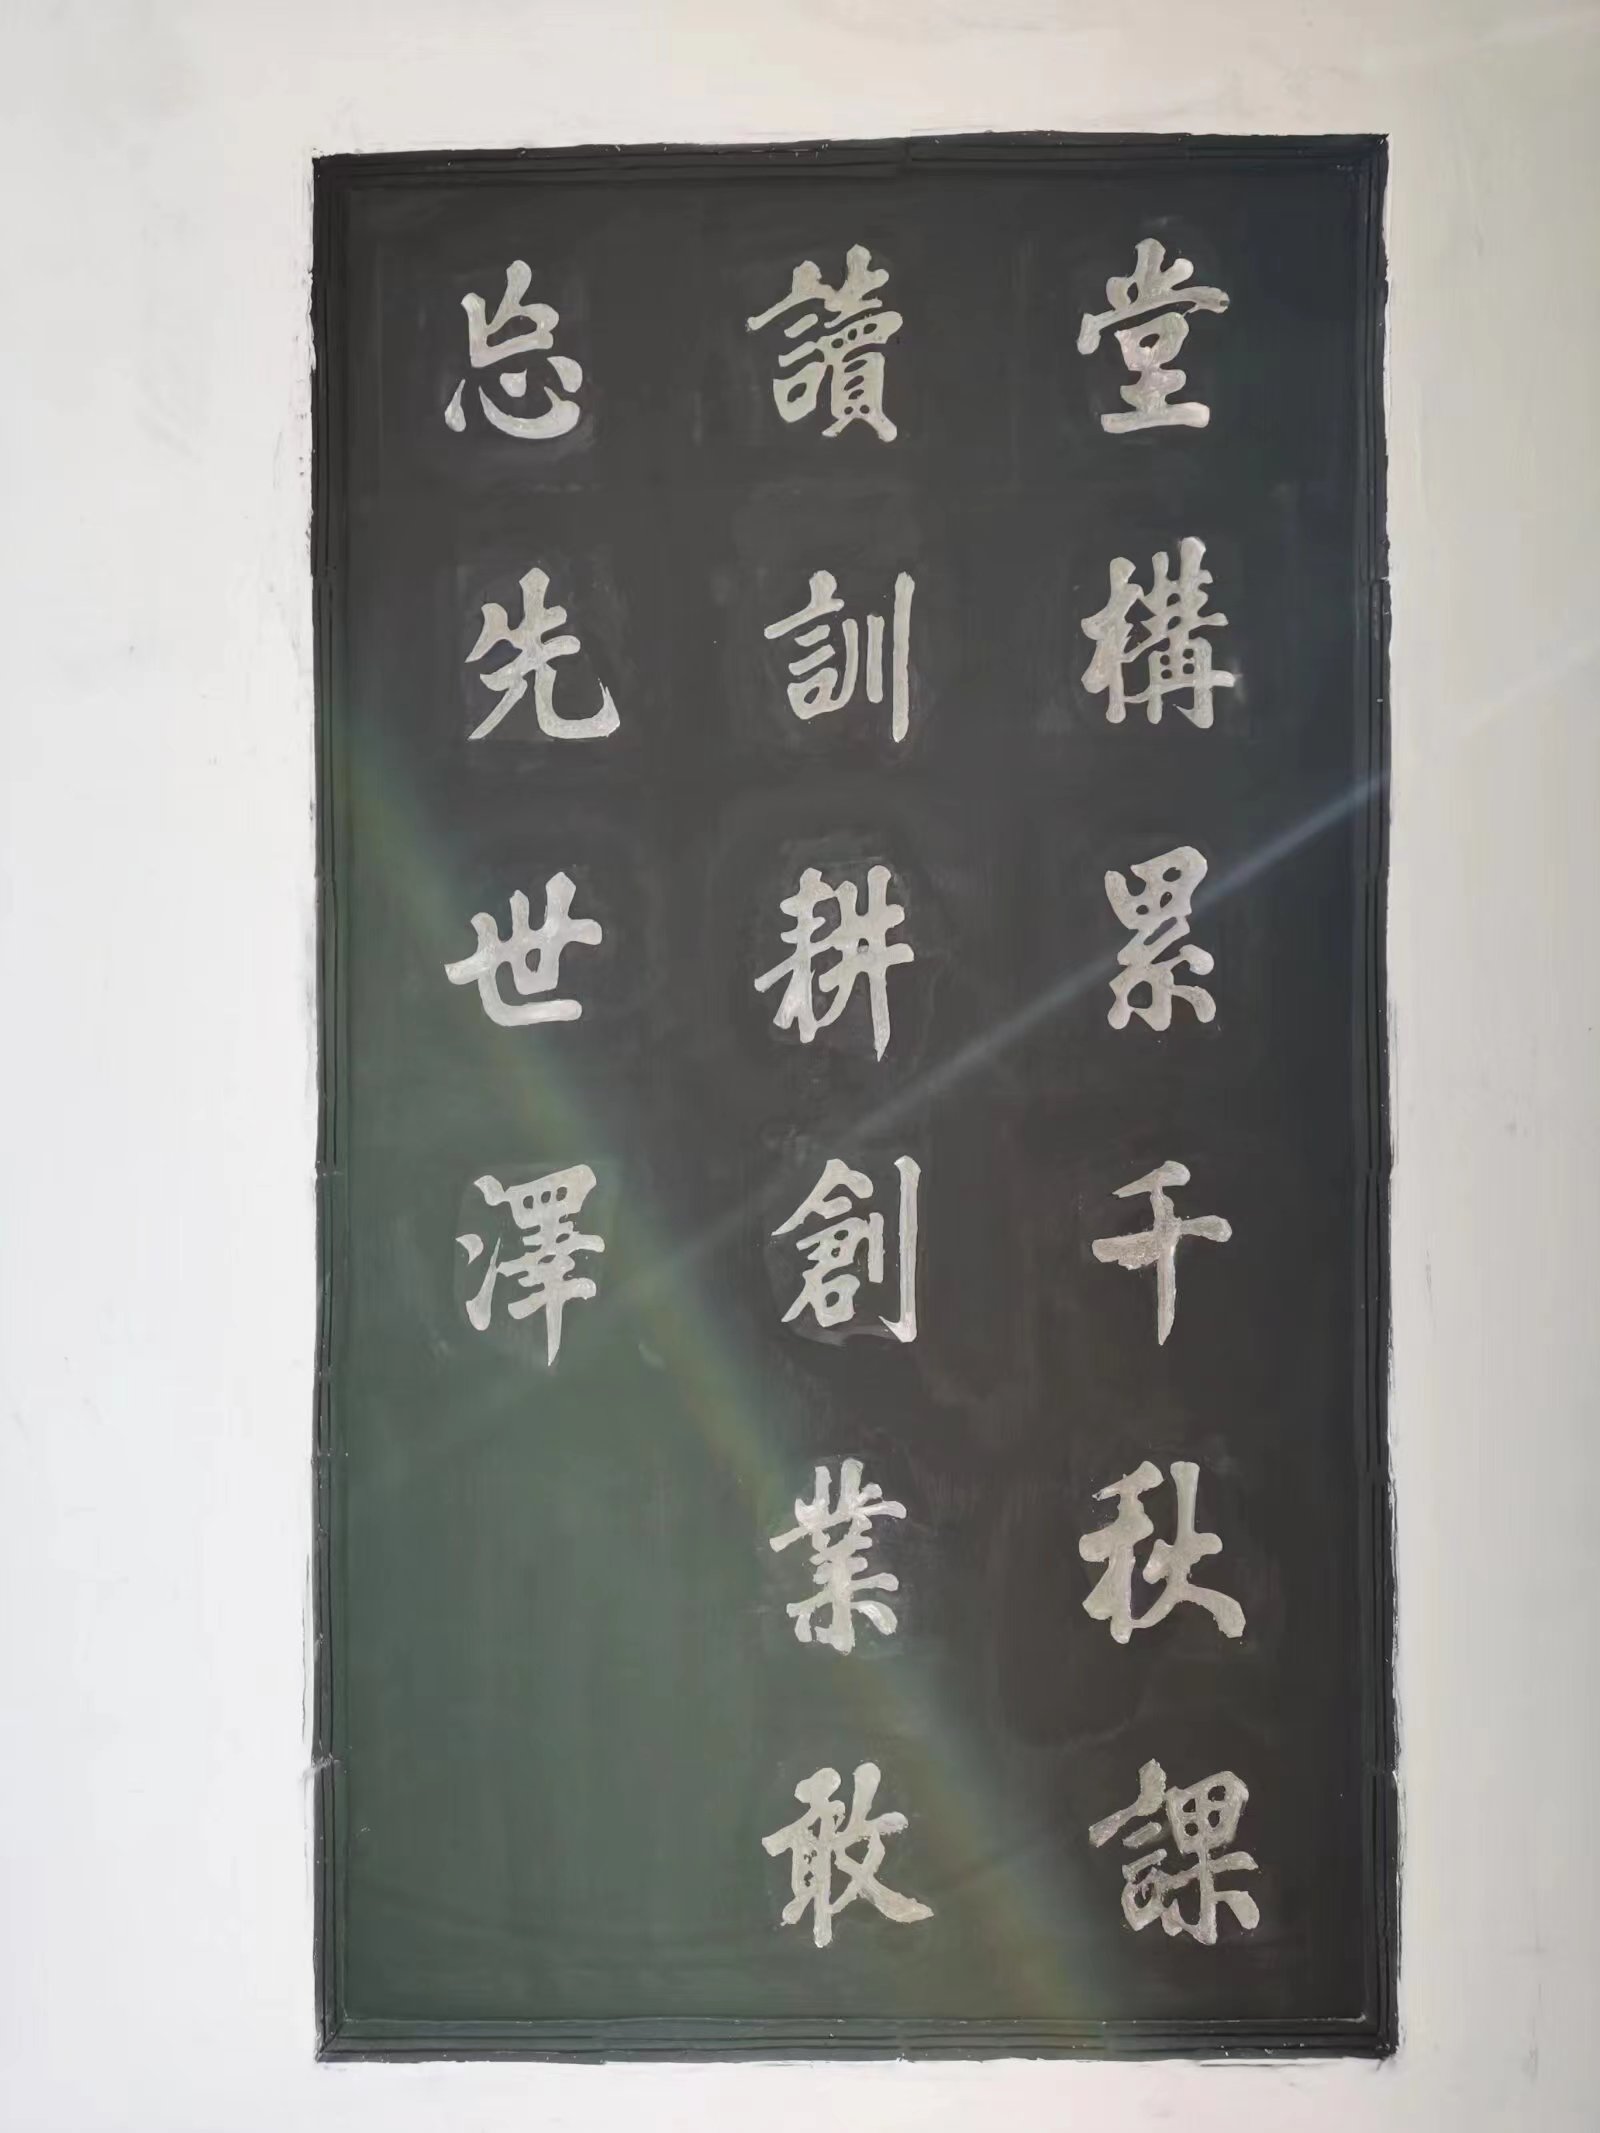 堂構累千秋課
讀訓耕創業敢
忘先世澤